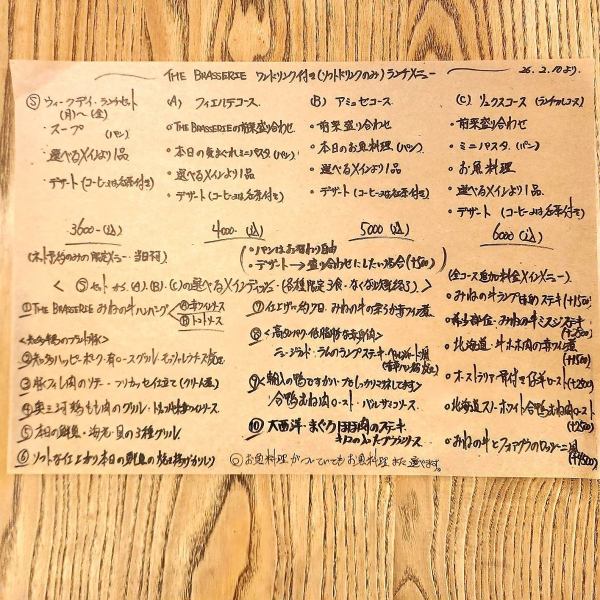 THE BRASSERIE ワンドリンク付き(ソフトドリンクのみ)ランチメニュー
26.2.10より.
Ⓢ ウィークデイ・ランチセット
(月)〜(金)
・スープ (パン)
・選べるメインより1品
・デザート (コーヒー又は紅茶付き)
3600-(込)
(ネット予約のみの限定メニュー・当日可)
(A) フィエルテコース
・THE BRASSERIEの前菜盛り合わせ
・本日の気まぐれミニパスタ (パン)
・選べるメインより1品
・デザート (コーヒー又は紅茶付き)
4000-(込)
(B) アミュゼコース
・前菜盛り合わせ
・本日のお魚料理 (パン)
・選べるメインより1品
・デザート (コーヒー又は紅茶付き)
5000(込)
(C) リュクスコース (ランチフルコース)
・前菜盛り合わせ
・ミニパスタ (パン)
・お魚料理
・選べるメインより1品
・デザート (コーヒー又は紅茶付き)
6000(込)
・パンはお替わり自由
・デザート→盛り合わせにしたい場合(+500)
<Ⓢセットから(A)(B)(C)の選べるメインディッシュ・(各種限定3食・なくなり次第終了)>
① THE BRASSERIE みねの牛ハンバーグ
Ⓐ赤ワインソース
Ⓑトマトソース
<知多半島のブランド豚>
② 知多ハッピーポーク・肩ロースグリル・モッツァレラチーズ焼
③ 豚フィレ肉のソテー・フリカッセ仕立て(クリーム煮)
④ 奥三河鶏もも肉のグリル・トリュフ
⑤ 本日の鮮魚・海老・貝の3種グリル
⑥ ソフトな仕上がり本日の鮮魚の
⑦ 仕上げ約7日、みねの牛ほほ赤ワイン煮
⑧ 高タンパク低脂肪な赤身肉
ニュージーランド・ラムのランプステキ・
⑨ <輸入の鴨ですがハーブもしっかりマネしてます>
合鴨むね肉ロースト・バルサミコソース
⑩ 大西洋・まぐろほほ肉のステキ
◎お魚料理がついていてもお魚料理また選べます。
(全コース追加料金メインメニュー)
・みねの牛ランプ
(+1500)
・希少部位・みねの牛ミスジステキ
(+2500)
・北海道・牛ホホ肉の赤ワイン煮
(+1500)
・オーストラリア骨付き仔羊ロースト
(+1200)
・北海道スノーホワイト合鴨むね肉ロースト
(+2500)
・みねの牛とフォアグラのロッシーニ風
(+4500)